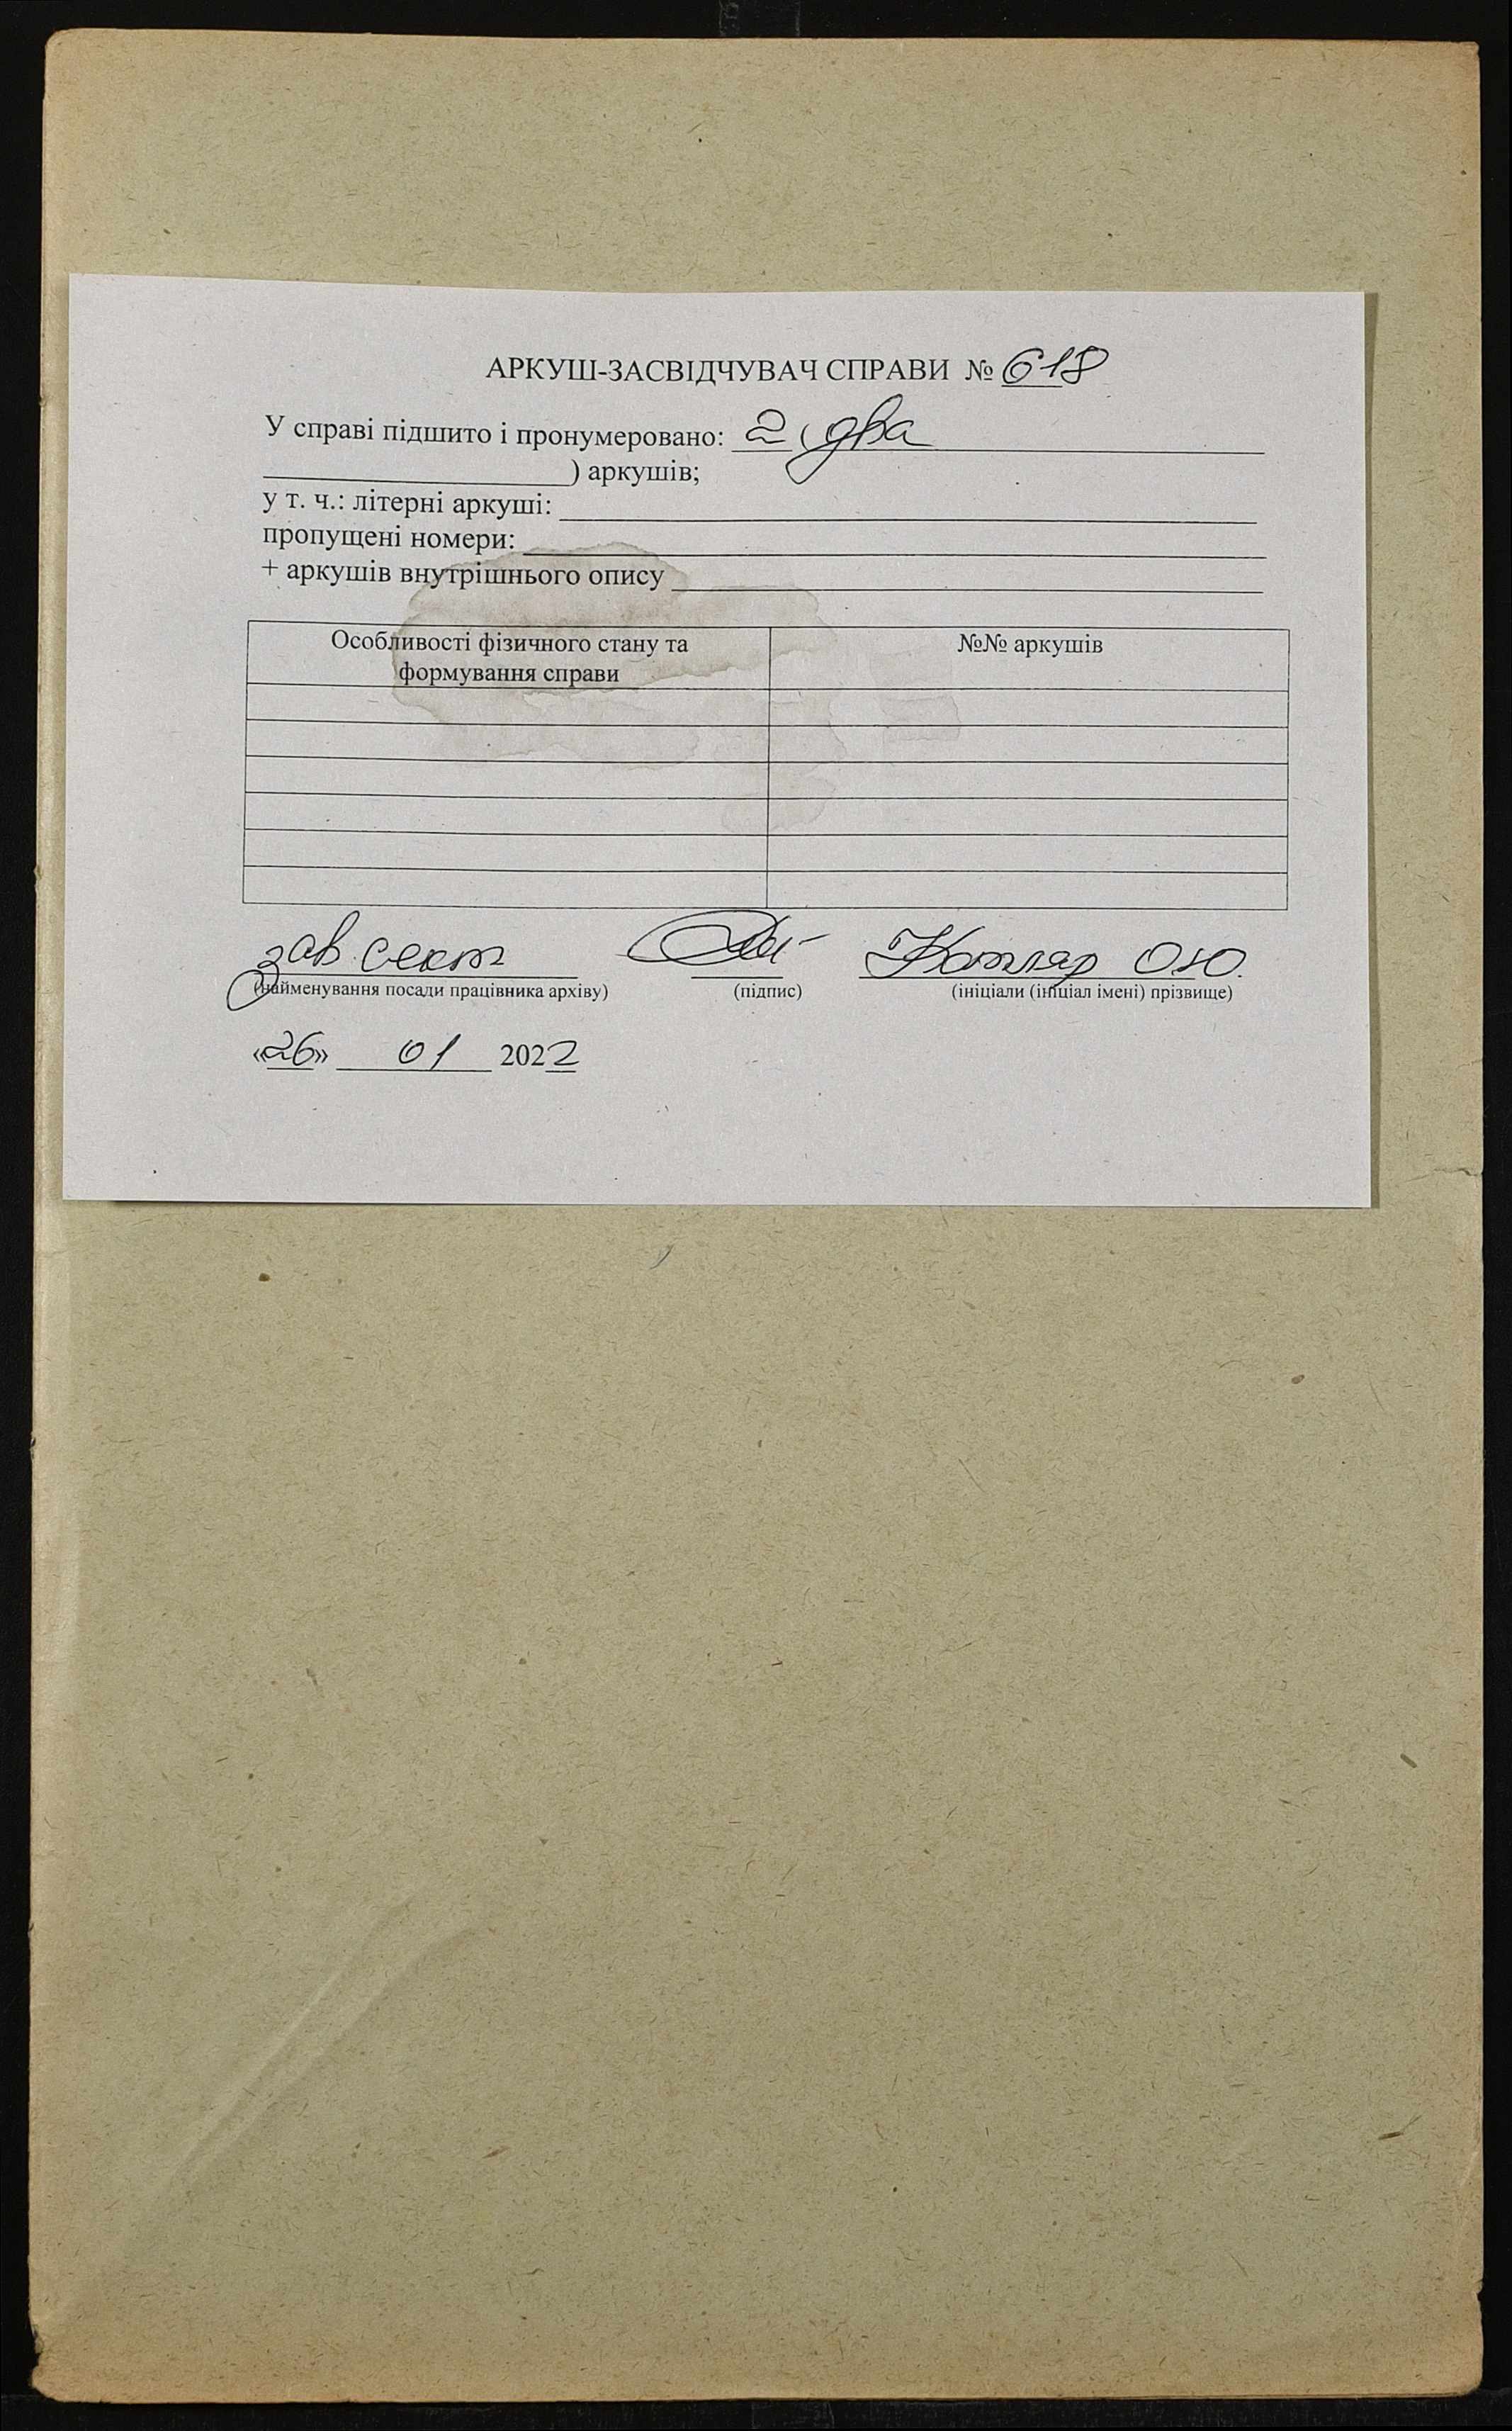 АРКУШ-ЗАСВІДЧУВАЧ СПРАВИ № 618
У справі підшито і пронумеровано: 2 (два
) аркушів;
у т. ч.: літерні аркуші:
пропущені номери:
+ аркушів внутрішнього опису
Особливості фізичного стану та формування справи №№ аркушів
зав. сект Котляр О.Ю.
(найменування посади працівника архіву) (підпис) (ініціали (ініціал імені) прізвище)
«26» 01 2022